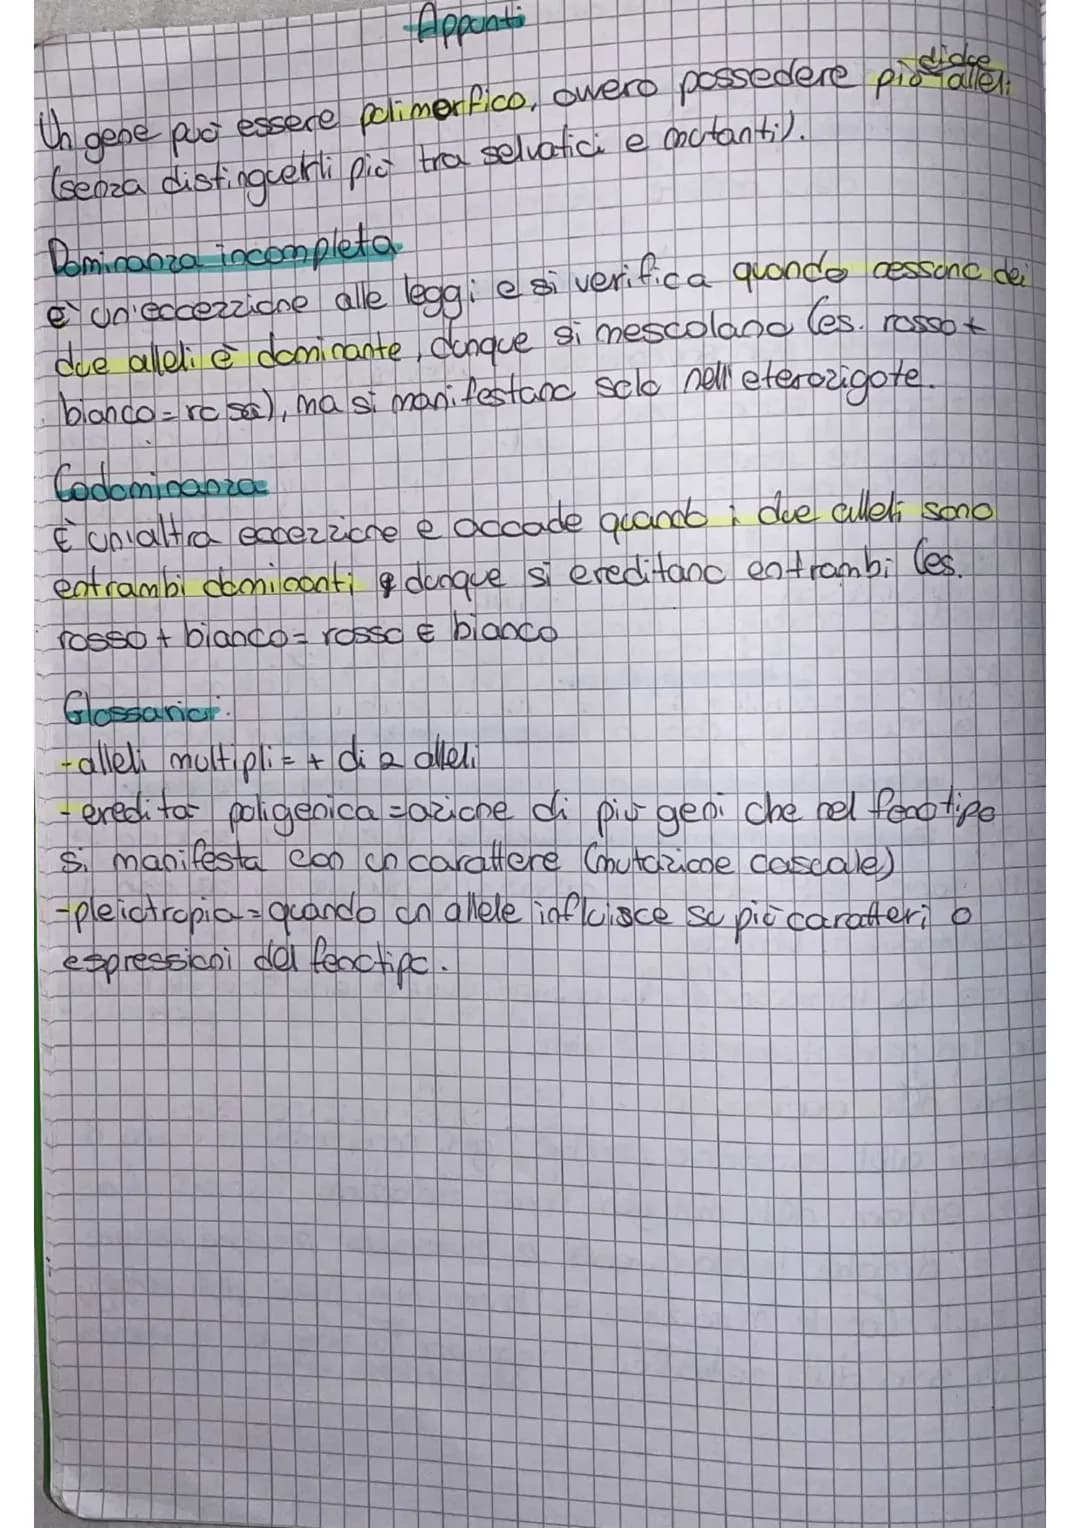 Appunti
di due
Un gene può essere polimorfico, ovvero possedere più alleli
(senza distinguerli più tra selvatici e mutanti).
Dominanza incompleta
è un'eccezzione alle leggi e si verifica quando nessuno dei
due alleli è dominante, dunque si mescolano (es. rosso +
bianco = rosa), ma si manifestano solo nell'eterozigote.
Codominanza
È un'altra eccezzione e accade quando i due alleli sono
entrambi dominanti e dunque si ereditano entrambi (es.
rosso + bianco = rosso E bianco
Glossario:
- alleli multipli = + di 2 alleli
- eredità poligenica = azione di più geni che nel fenotipo
si manifesta con un carattere (mutazione casuale)
- pleiotropia = quando un allele influisce su più caratteri o
espressioni del fenotipo.